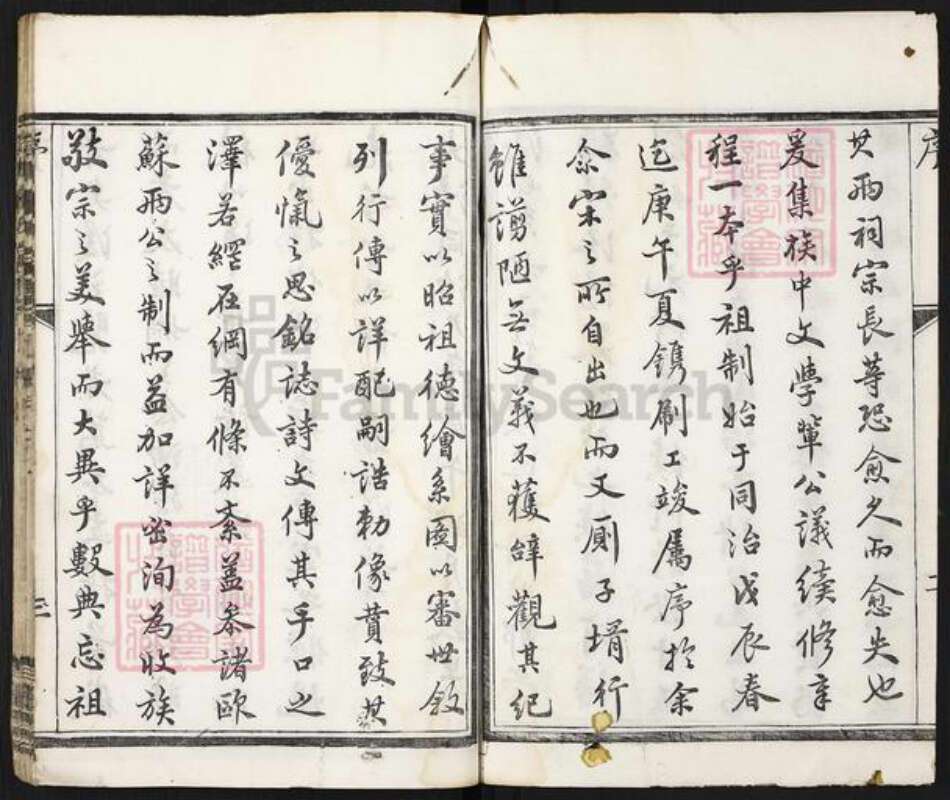 序
其兩祠宗長等恐愈久而愈失也
爰集族中文學輩公議續修章
程一本乎祖制始于同治戊辰春
迄庚午夏鐫刷工竣屬序於余
余宋之所自出也而又廁子壻行
雖謭陋無文義不獲辭觀其紀
二
事實以昭祖德繪系圖以審世敘
列行傳以詳配嗣誥勅像贊致其
優愾之思銘誌詩文傳其手口之
澤若網在綱有條不紊蓋參諸歐
蘇兩公之制而益加詳密洵為收族
敬宗之美舉而大異乎數典忘祖
序
三
FamilySearch